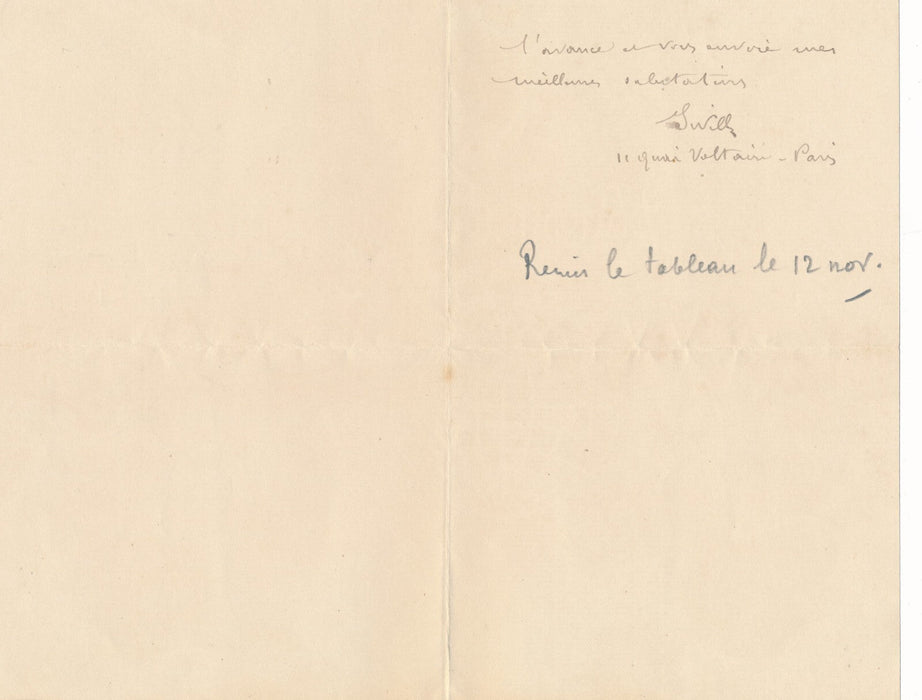 l'avance et vous envoie mes
meilleures salutations
11 quai Voltaire - Paris
Remis le tableau le 12 nov.